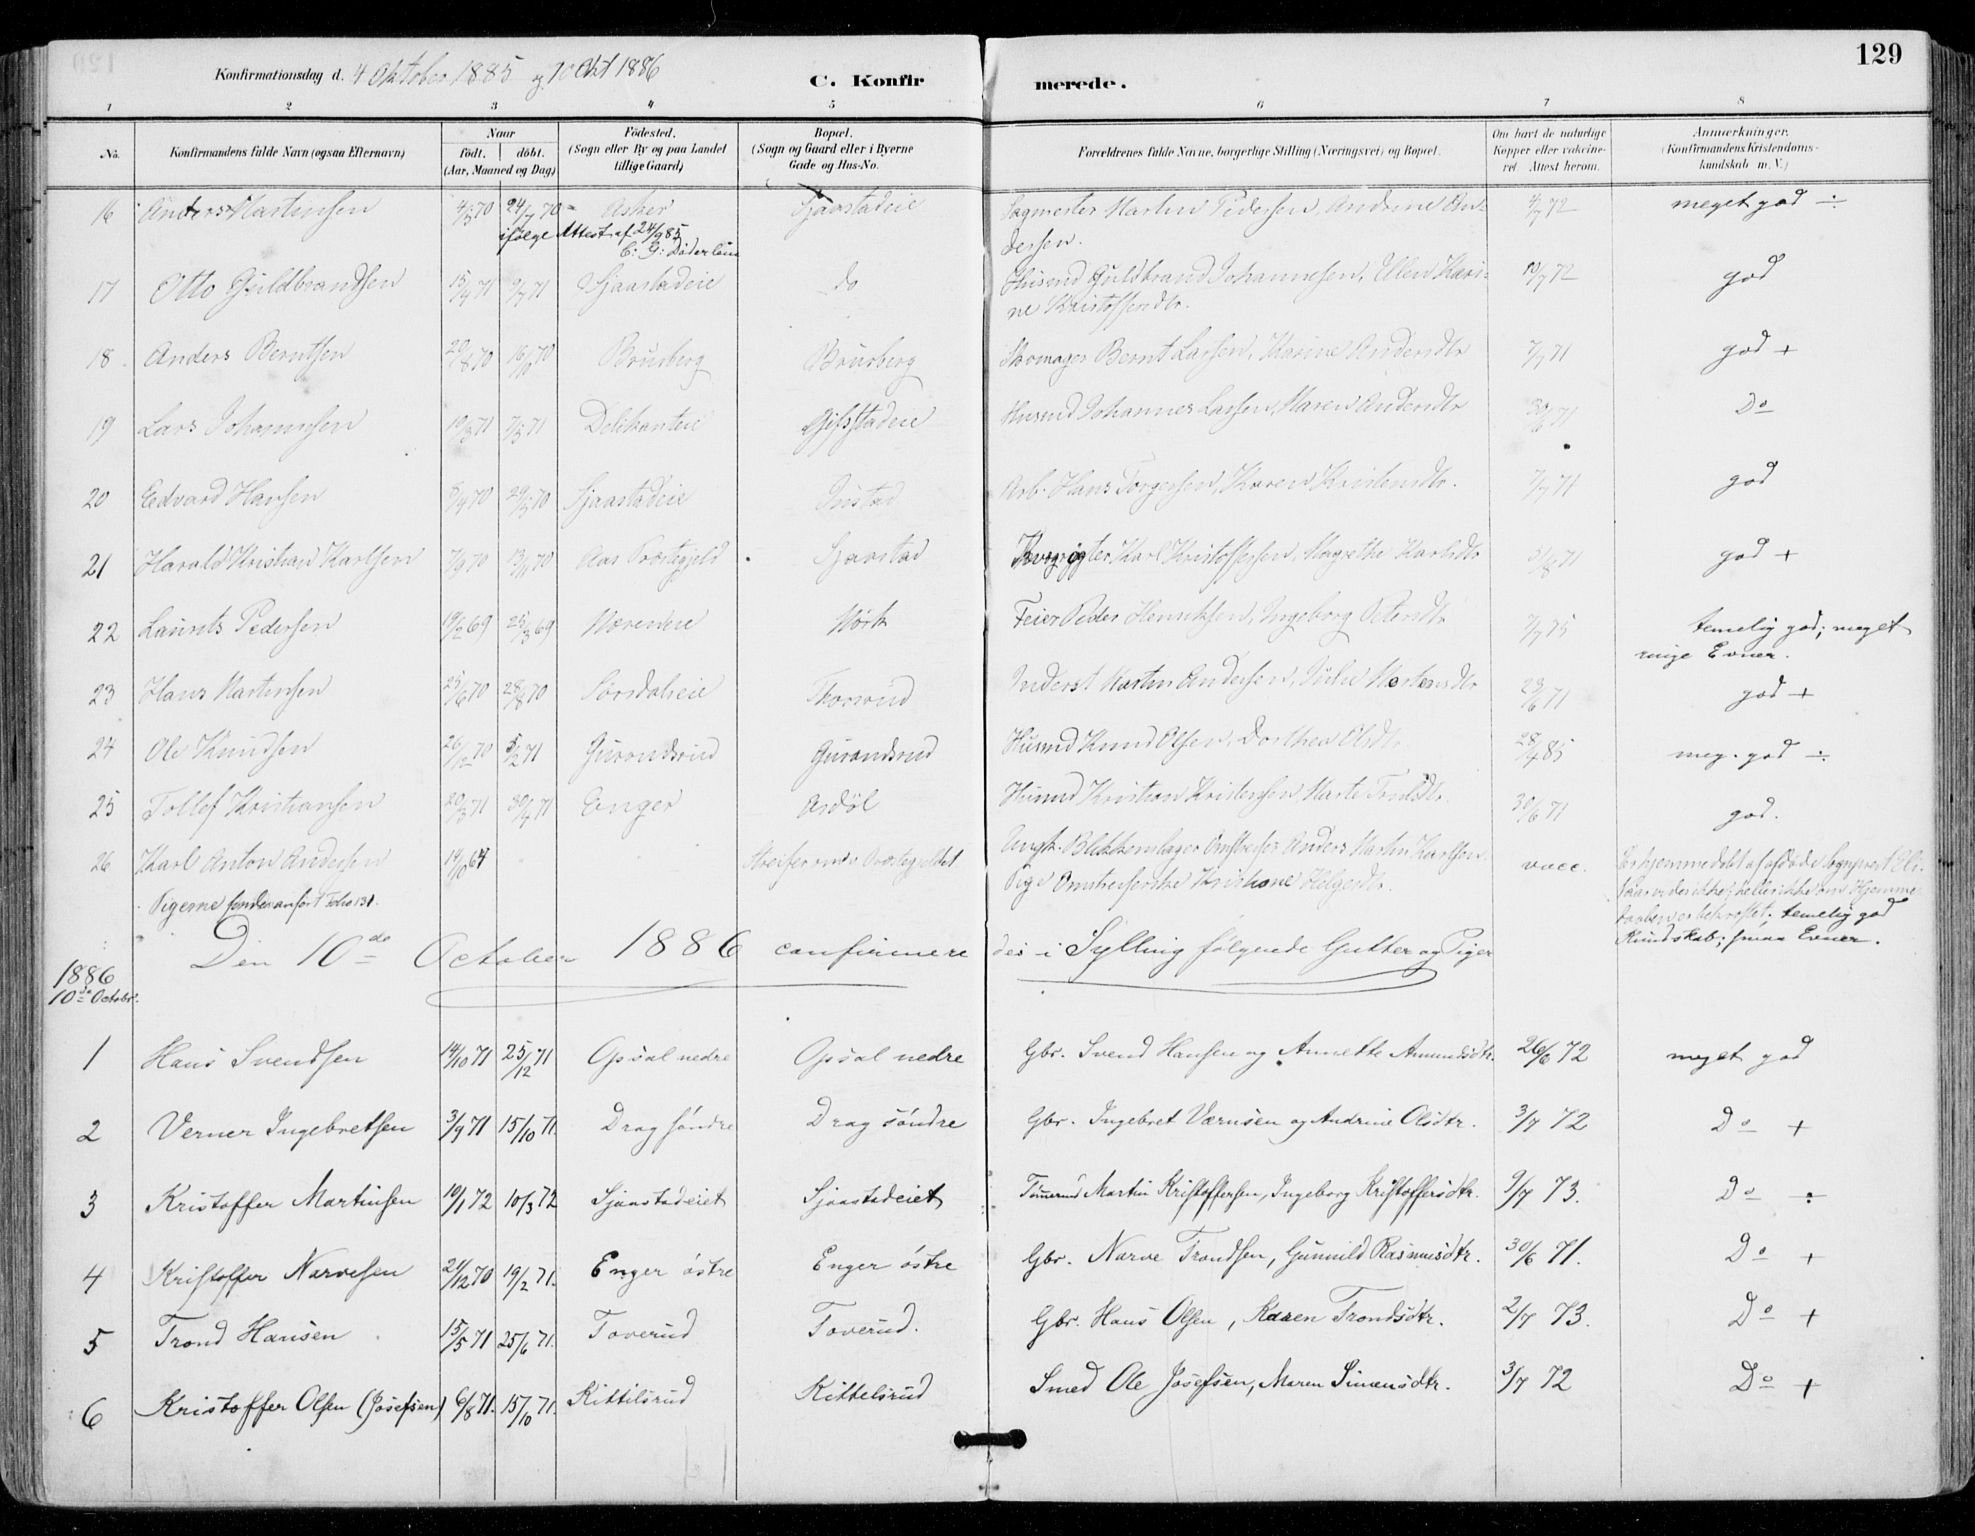 129
Konfirmationsdag d. 4 Oktober 1885 og 10 Okt 1886
C. Konfirmerede.
1 2 3 4 5 6 7 8
No. Konfirmandens fulde Navn (ogsaa Efternavn) Naar født. døbt. (Aar, Maaned og Dag) Fødested. (Sogn eller By og paa Landet tillige Gaard) Bopæl. (Sogn og Gaard eller i Byerne Gade og Hus-No. Forældrenes fulde Navne, borgerlige Stilling (Næringsvei) og Bopæl. Om havt de naturlige Kopper eller vakcineret Attest herom. Anmærkninger. (Konfirmandens Kristendomskundskab m. V.)
16 Anders Martinsen 4/5 70 24/7 70 Asker Sjaastadeie Sagmester Martin Pedersen, Andrine An- 4/7 72 meget god ÷
ifølge Attest af 24/9 85 dersen.
C: G: Döderlein
17 Otto Guldbrandsen 15/4 71 9/7 71 Sjaastadeie do Husmd Guldbrand Johannesen, Ellen Kari- 10/7 72 god
ne Kristoffersdtr.
18. Anders Berntsen 20/8 70 16/10 70 Brusberg Brusberg Skomager Bernt Larsen, Karine Andersdtr 7/7 71 god +
19 Lars Johannesen 19/3 71 7/5 71 Gifsstadeie Husmd Johannes Larsen, Maren Andersdtr 30/6 71 Do
20 Edvard Hansen 70 29/5 70 Sjaastadeie Arb. Hans Torgersen, Karen Kristensdtr. 7/7 71 god
21 Harald Kristian Karlsen 7/9 70 13/11 70 Aas Præstegjeld Sjaastad Karl Kristoffersen, Margrethe Karlsdtr 71 god +
22 Laurits Pedersen 19/2 69 25/3 69 Mørk Feier Peder Henriksen, Ingeborg Petersdtr 7/7 75 temelig god; meget
ringe Evner.
23 Hans Martinsen 25/6 70 28/8 70 Sørsdaleie Inderst Martin Andersen, Julie Mortensdtr 23/6 71 god +
24 Ole Knudsen 26/12 70 5/2 71 Gurandsrud Gurandsrud Husmd Knud Olsen, Dorthea Olsdtr 28/4 85 meg. god ÷
25 Tollef Kristiansen 20/3 71 30/4 71 Enger Asdøl Husmd Kristian Kristensen, Marte Trulsdtr. 30/6 71 god.
26 Karl Anton Andersen 14/10 64 Streifer om i Præstegjeldet Ungk. Blikkenslager Omstreifer Anders Martin Karlsen, vacc.
Pigerne findes anført Folio 131. Pige Omstreiferske Kristiane Helgesdtr.
temelig god
Kundskab; smaa Evner.
Den 10de October 1886 confirmeredes i Sylling følgende Gutter og Piger
1886
10de Octobr.
1 Hans Svendsen 14/10 71 25/12 71 Opsal nedre Opsal nedre Gbr. Svend Hansen og Annette Amundsdtr. 26/6 72 meget god
2 Verner Ingebretsen 3/9 71 15/10 71. Drag søndre Drag søndre Gbr. Ingebret Værnsen og Andrine Olsdtr. 3/7 72 Do +
3 Kristoffer Martinsen 10/1 72 10/3 72 Sjaastadeiet Sjaastadeiet Martin Kristoffersen, Ingeborg Kristoffersdtr. 9/7 73. Do ÷
4 Kristoffer Narvesen 21/12 70 19/2 71. Enger østre Enger østre Gbr. Narve Trondsen, Gunnild Rasmusdtr. 30/6 71. Do +
5 Trond Hansen 15/5 71 25/6 71. Toverud Toverud. Gbr. Hans Olsen, Karen Trondsdtr. 2/7 73. Do +
6 Kristoffer Olsen (Josefsen) 6/8 71. 15/10 71. Kittilsrud Kittelsrud Smed Ole Josefsen, Maren Simensdtr. 3/7 72 Do +